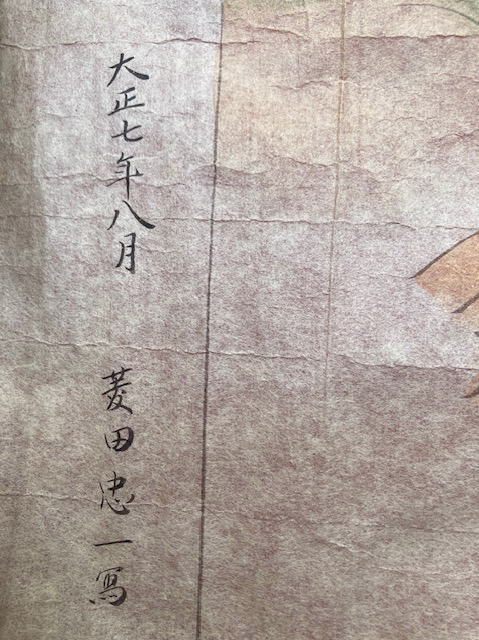 大正七年八月
菱田忠一寫